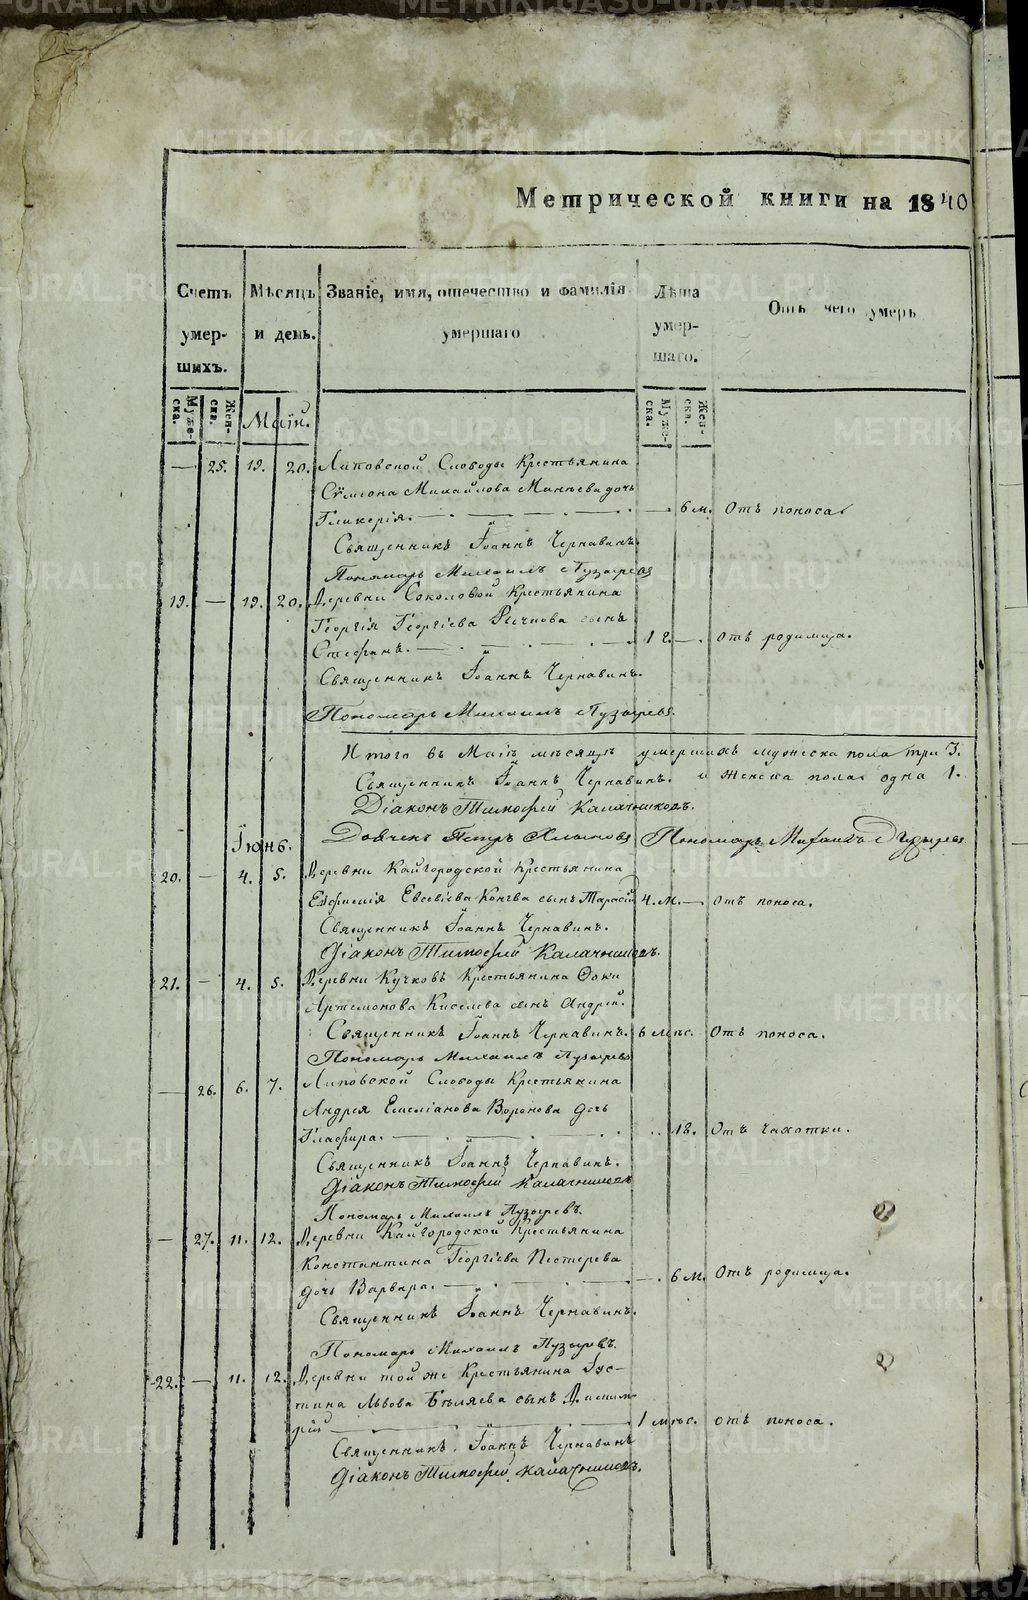 METRIKI.GASO-URAL.RU
Метрической книги на 1840
Счетъ умер-шихъ.
Мѣсяцъ и день.
Званіе, имя, отечество и фамилія умершаго
Лѣта умер-шаго.
Отъ чего умеръ
Муже-ска.
Жен-ска.
Муже-ска.
Жен-ска.
Маій.
— 25. 19. 20. Липовской Слободы Крестьянина
Сѵмеона Михайлова Минѣева дочь
Гликерія. — 6 м. Отъ поноса.
Священникъ Іоаннъ Чернавинъ.
Пономарь Михаилъ Пузыревъ
19. — 19. 20. Деревни Соколовой Крестьянина
Георгія Георгіева Речнова сынъ
Стефанъ. — 1 г. — Отъ родимца.
Священникъ Іоаннъ Чернавинъ.
Пономарь Михаилъ Пузыревъ.
Итого въ Маіѣ мѣсяцѣ умершихъ мужеска пола три 3.
Священникъ Іоаннъ Чернавинъ. и женска пола одна 1.
Діаконъ Тимофей Калачниковъ.
Дьячекъ Петръ Пономарь Михаилъ Пузыревъ.
Іюнь.
20. — 4. 5. Деревни Кайгородской Крестьянина
Евфимія Евсевіева сынъ Тарасій 4. м. — Отъ поноса.
Священникъ Іоаннъ Чернавинъ.
Діаконъ Тимофей Калачниковъ.
21. — 4. 5. Деревни Кучковъ Крестьянина Фоки
Артемонова Киселева сынъ Андрей.
Священникъ Іоаннъ Чернавинъ. 6 мѣс. Отъ поноса.
Пономарь Михаилъ Пузыревъ
— 26. 6. 7. Липовской Слободы Крестьянина
Андрея Емеліанова Воронова дочь
Глафира. — 18. Отъ чахотки.
Священникъ Іоаннъ Чернавинъ.
Діаконъ Тимофей Калачниковъ
Пономарь Михаилъ Пузыревъ.
— 27. 11. 12. Деревни Кайгородской Крестьянина
Константина Георгіева Пестерева
дочь Варвара. — 6 м. Отъ родимца.
Священникъ Іоаннъ Чернавинъ.
Пономарь Михаилъ Пузыревъ.
22. — 11. 12. Деревни той же Крестьянина Іус-
тина Львова Бѣляева сынъ Димит-
рій — 1 мѣс. Отъ поноса.
Священникъ Іоаннъ Чернавинъ
Діаконъ Тимофей Калачниковъ.